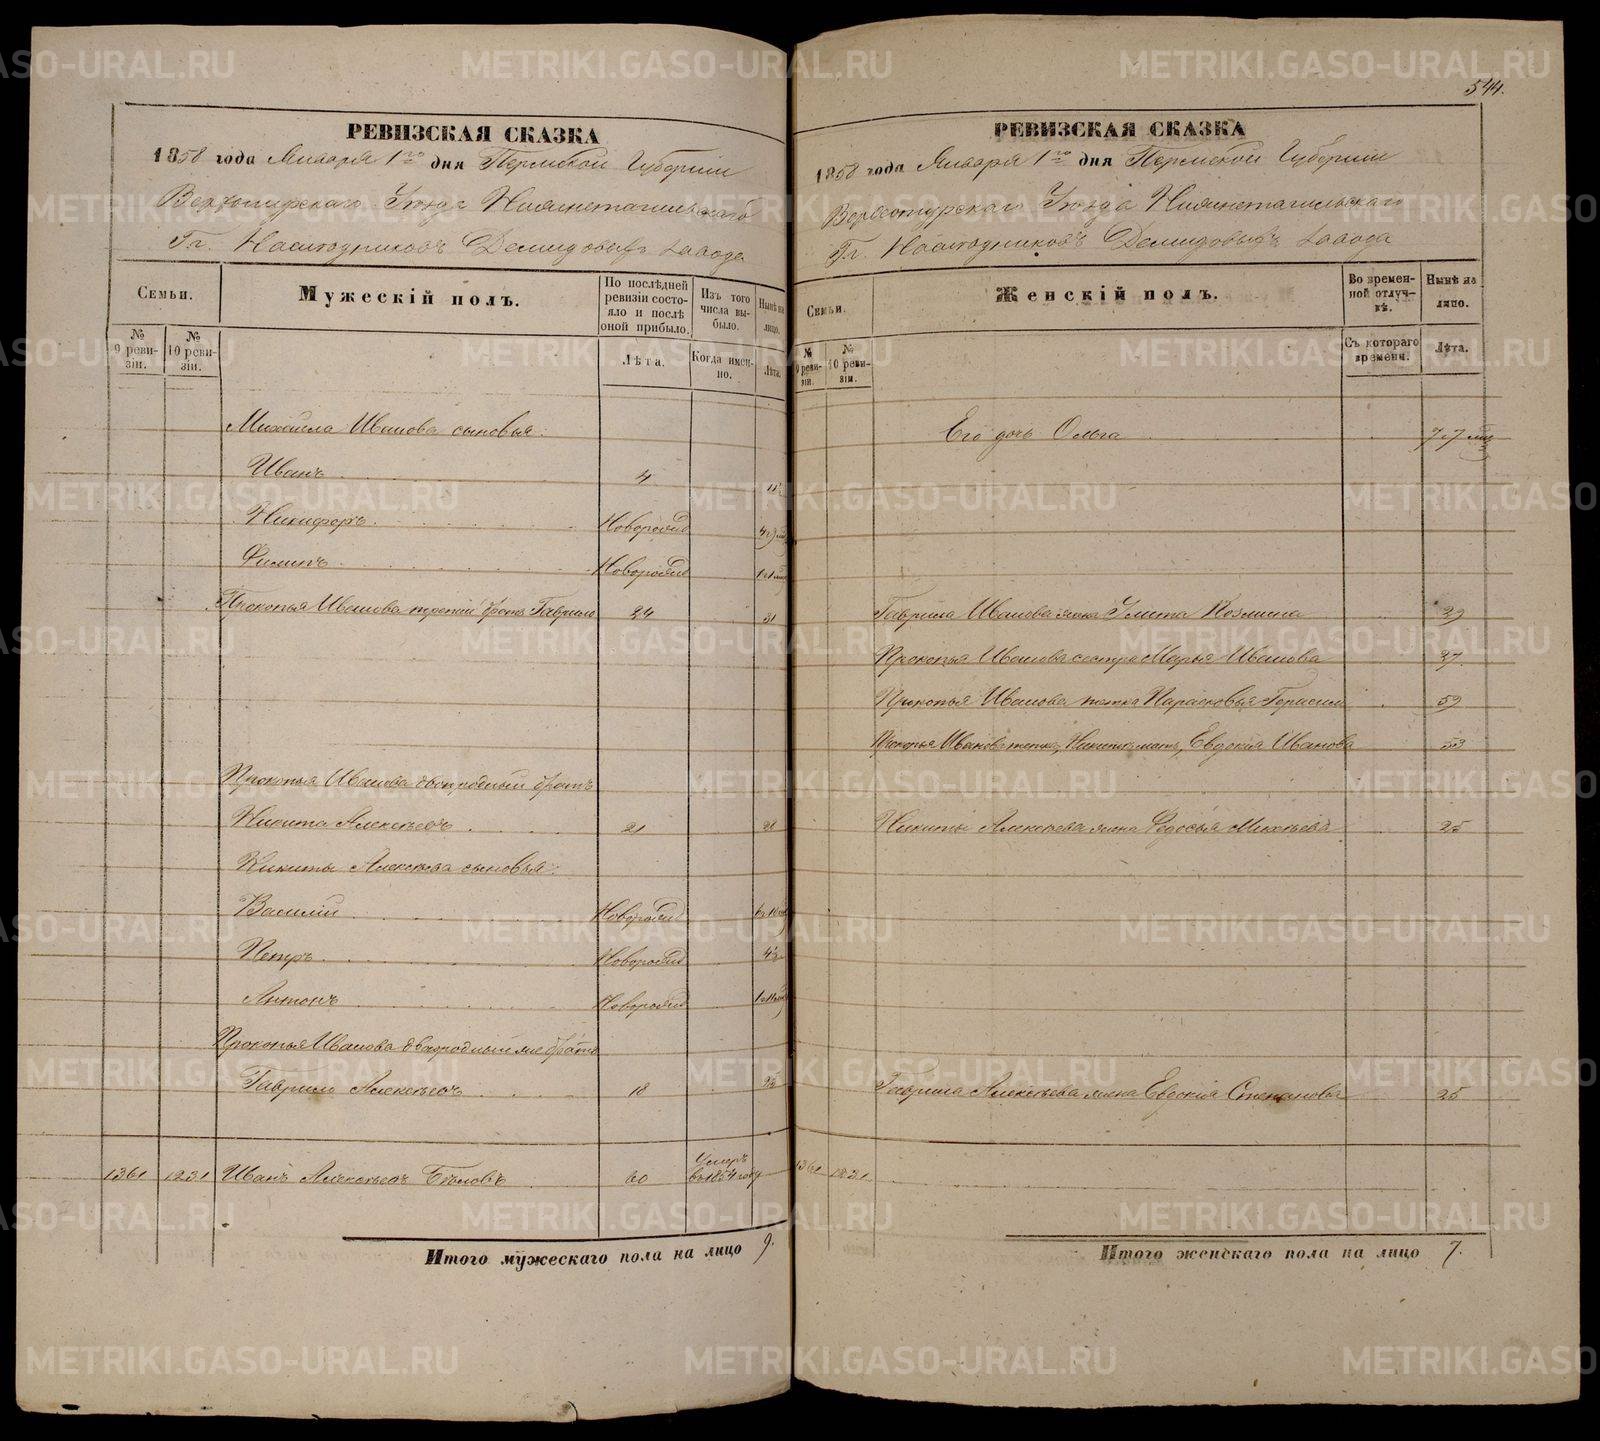 544.
РЕВИЗСКАЯ СКАЗКА
1858 года Января 1го дня Пермской Губернии
Верхотурскаго Уезда Нижнетагильскаго
Гг. Наследниковъ Демидовыхъ завода
Семьи.
Мужескій полъ.
По послѣдней ревизіи состояло и послѣ оной прибыло.
Изъ того числа выбыло.
Нынѣ на лицо.
№ 9 ревизіи.
№ 10 ревизіи.
Лѣта.
Когда именно.
Лѣта.
Михайла Иванова сыновья:
Иванъ 4 11½
Никифоръ Новорожд
Филипъ Новорожд
Прокопья Иванова третій братъ Гаврило 24 31
Прокопья Иванова двоюродный братъ
Никита Алексѣевъ 21 28
Никиты Алексѣева сыновья:
Василій Новорожд
Петръ Новорожд 4½
Антонъ Новорожд
Прокопья Иванова двоюродный же братъ
Гаврило Алексѣевъ 18 25
1361 1231 Иванъ Алексѣевъ Бѣловъ 60 Умеръ въ 1854 году
Итого мужескаго пола на лицо 9.
РЕВИЗСКАЯ СКАЗКА
1858 года Января 1го дня Пермской Губерніи
Верхотурскаго Уезда Нижнетагильскаго
Гг. Наследниковъ Демидовыхъ завода
Семьи.
Женскій полъ.
Во временной отлучкѣ.
Нынѣ на лицо.
№ 9 ревизіи.
№ 10 ревизіи.
Съ котораго времени.
Лѣта.
Его дочь Ольга
Гаврила Иванова жена Улита Козмина 29
Прокопья Иванова сестра Марья Иванова 37
Прокопья Иванова тетка Парасковья Герасим 59
Прокопья Иванова тетка, Никиты мать, Евдокія Иванова 53
Никиты Алексѣева жена Федосья Михѣева 25
Гаврила Алексѣева жена Евдокія Степанова 25
1361 1231
Итого женскаго пола на лицо 7.
METRIKI.GASO-URAL.RU